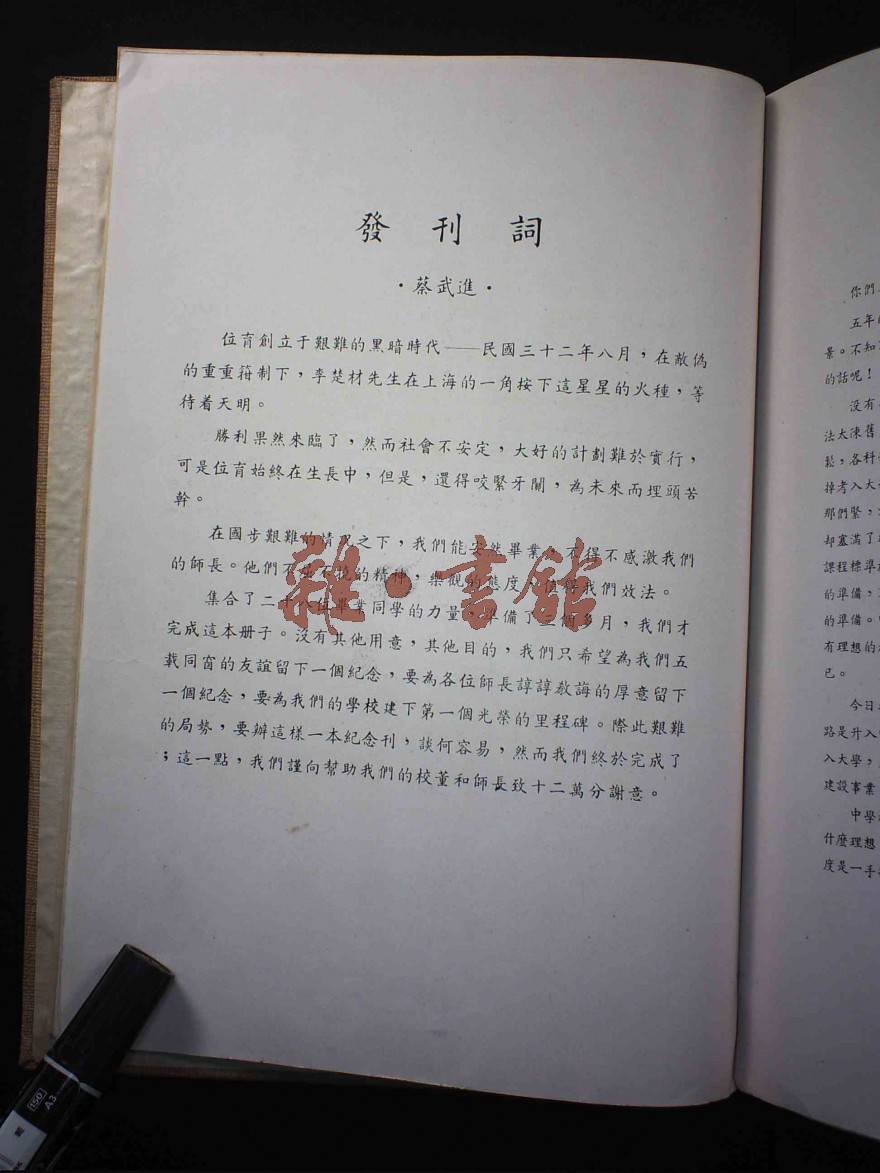 發刊詞
·蔡武進·
位育創立于艱難的黑暗時代——民國三十二年八月，在敵偽
的重重箝制下，李楚材先生在上海的一角按下這星星的火種，等
待着天明。
勝利果然來臨了，然而社會不安定，大好的計劃難於實行，
可是位育始終在生長中，但是，還得咬緊牙關，為未來而埋頭苦
幹。
在國步艱難的情況之下，我們能安然畢業，不得不感激我們
的師長。他們不屈不撓的精神，樂觀的態度，值得我們效法。
集合了二十八位畢業同學的力量，準備了三個多月，我們才
完成這本册子。沒有其他用意，其他目的，我們只希望為我們五
載同窗的友誼留下一個紀念，要為各位師長諄諄教誨的厚意留下
一個紀念，要為我們的學校建下第一個光榮的里程碑。際此艱難
的局勢，要辦這樣一本紀念刊，談何容易，然而我們終於完成了
；這一點，我們謹向幫助我們的校董和師長致十二萬分謝意。
雜·書館
你們
五年
景。不知
的話呢！
沒有
法太陳舊
鬆，各科
掉考入大
那們緊，
却塞滿了
課程標準
的準備，
的準備。
有理想的
已。
今日
路是升入
入大學，
建設事業
中學
什麼理想
度是一手
150
A3